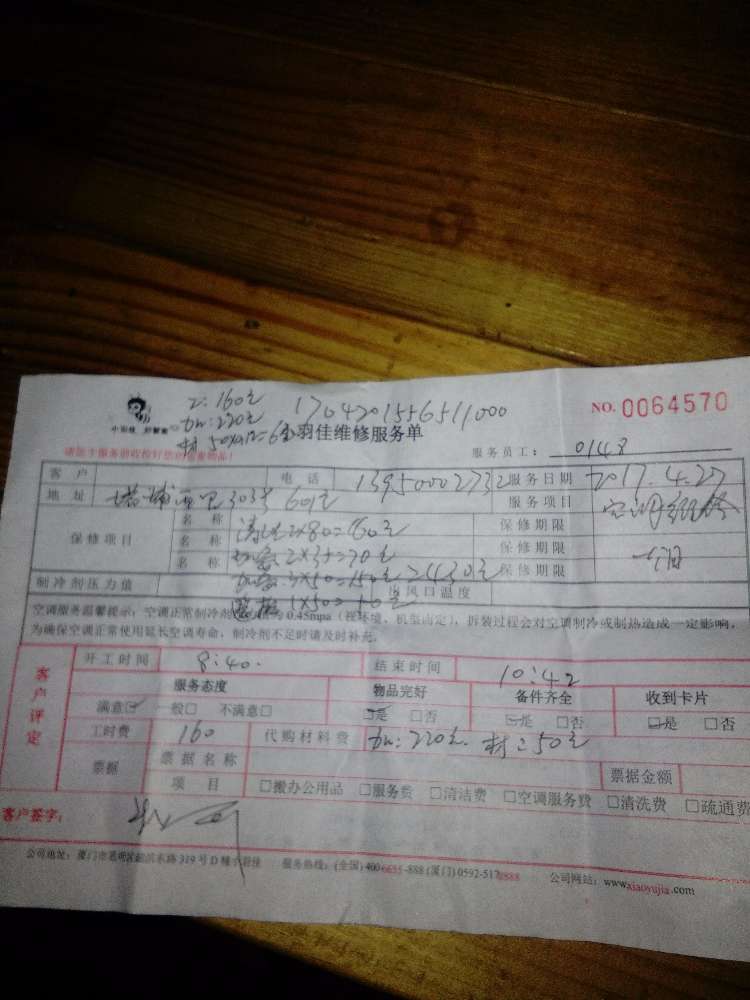 工:160元
加:220元 1704201556511000
材:50 羽佳维修服务单 NO. 0064570
请您于服务前收检好您的贵重物品! 服务员工: 0148
客户 电话 13950002732 服务日期 2017.4.27
地址 塔埔西里303号601室 服务项目 空调维修
保修项目 名称 清洗2×80=160元 保修期限
名称 加氟2×35=70元 保修期限 一个月
名称 加氟3×50=150元 =430元 保修期限
制冷剂压力值 1×50= 出风口温度
空调服务温馨提示:空调正常制冷剂 为0.45mpa(视环境、机型而定),拆装过程会对空调制冷或制热造成一定影响,
为确保空调正常使用延长空调寿命,制冷剂不足时请及时补充。
客户评定
开工时间 8:40. 结束时间 10:42
服务态度 物品完好 备件齐全 收到卡片
满意☑ 一般□ 不满意□ □是 □否 □是 □否 □是 □否
工时费 160 代购材料费 加:220元. 材:50元
票据 票据名称 票据金额
项目 □搬办公用品 □服务费 □清洁费 □空调服务费 □清洗费 □疏通费
客户签字:
公司地址:厦门市思明区 319号D幢 服务热线:(全国)400-6655-888 (厦门)0592-517 8888 公司网站:www.xiaoyujia.com